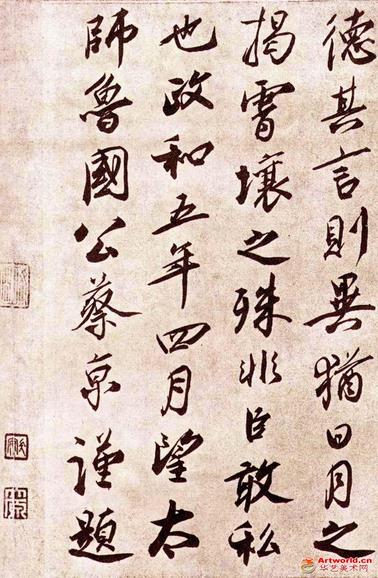 德其言則異猶日月之
揭霄壤之殊非臣敢私
也政和五年四月望太
師魯國公蔡京謹題
Artworld.cn
华艺美术网